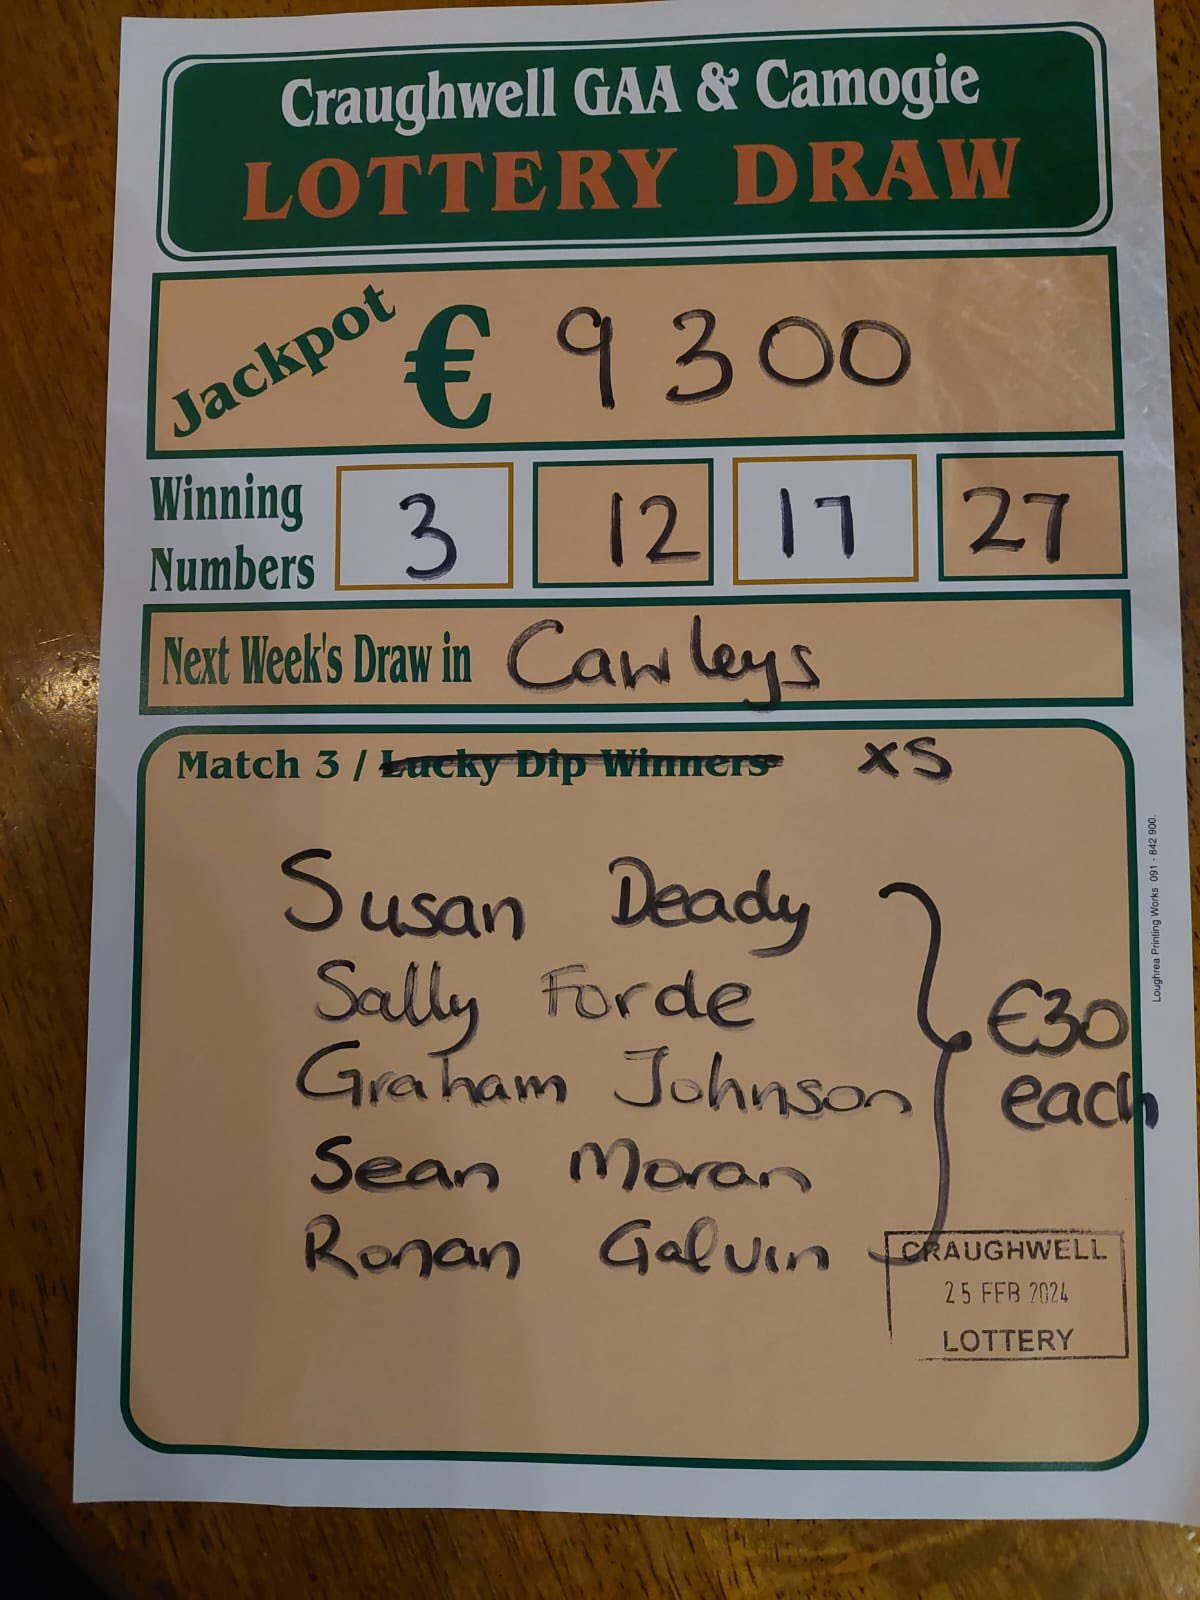 Craughwell GAA & Camogie
LOTTERY DRAW
Jackpot € 9300
Winning Numbers 3 12 17 27
Next Week's Draw in Cawleys
Match 3 / Lucky Dip Winners x5
Susan Deady
Sally Forde
Graham Johnson
Sean Moran
Ronan Galvin
€30
each
CRAUGHWELL
25 FEB 2024
LOTTERY
Loughrea Printing Works 091 - 842 900.